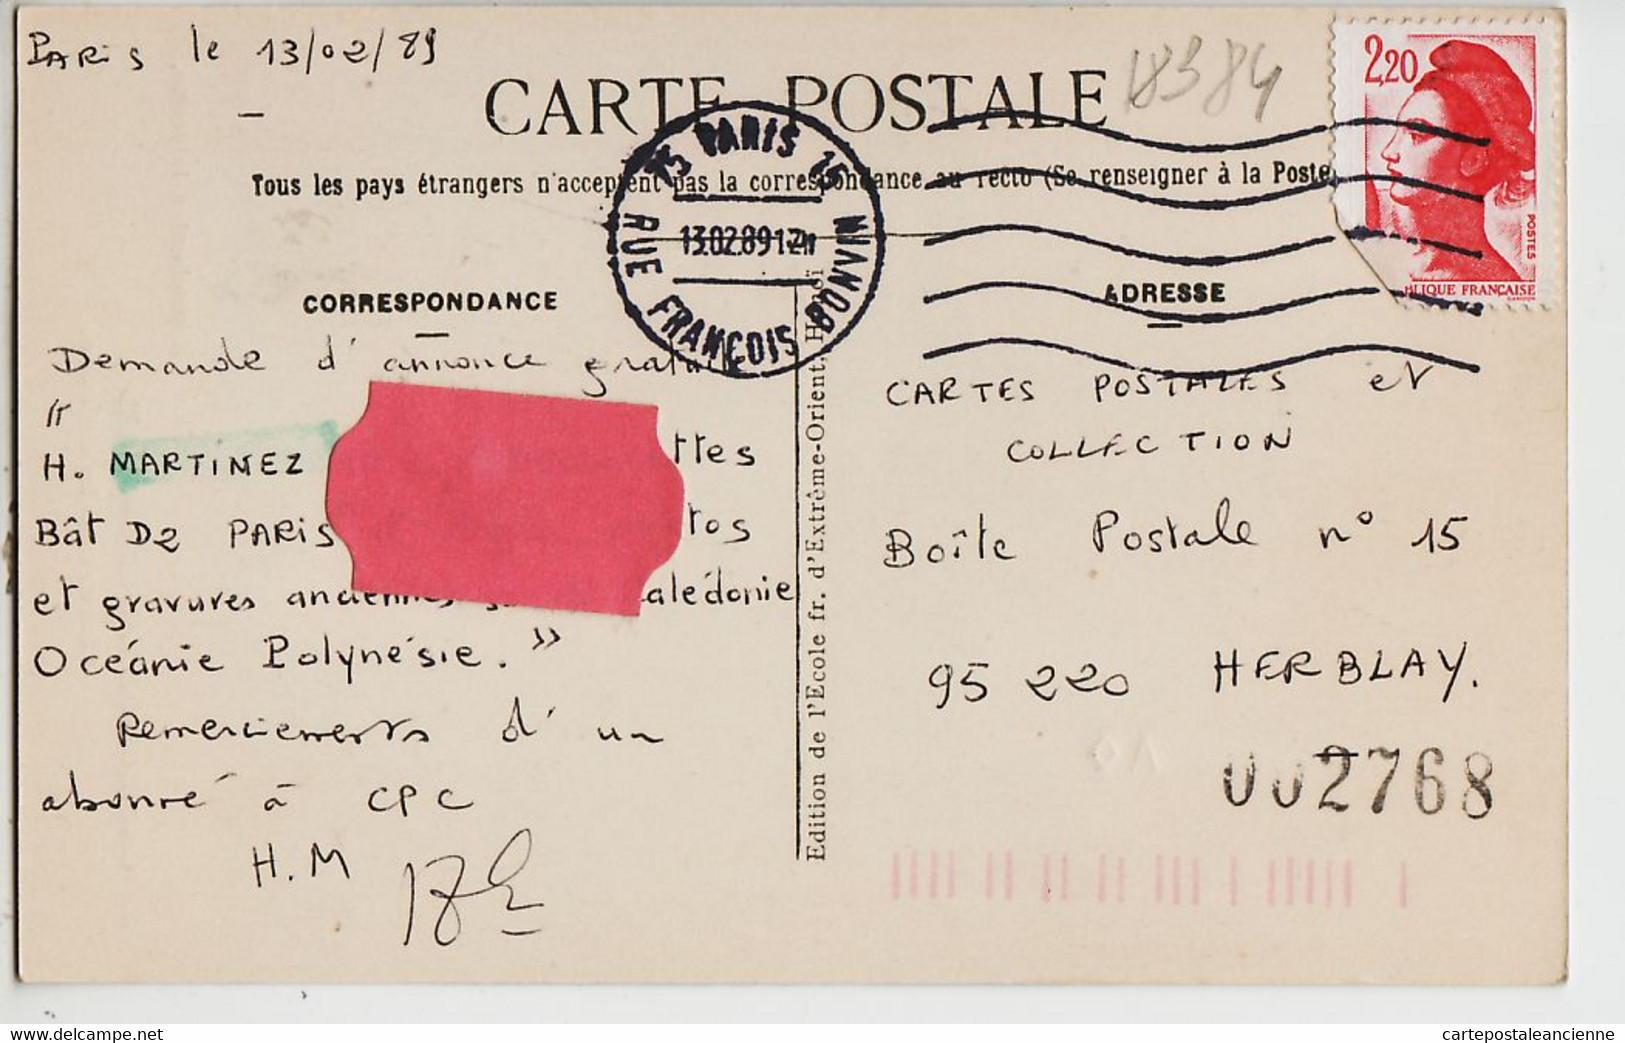 PARIS le 13/02/89
CARTE POSTALE
Tous les pays étrangers n'acceptent pas la correspondance au recto (Se renseigner à la Poste
75 PARIS 15
13.02.89
RUE FRANÇOIS BONVIN
2,20
POSTES
BLIQUE FRANÇAISE
CORRESPONDANCE
Demande d'annonce gratuite
"
H. MARTINEZ ttes
Bât D2 PARIS tos
et gravures anciennes alédonie
Océanie Polynésie. "
Remerciements d'un
abonné à CPC
H.M
Edition de l'Ecole fr. d'Extrême-Orient, Hanoï
ADRESSE
CARTES POSTALES et
COLLECTION
Boîte Postale n° 15
95 220 HERBLAY.
002768
cartepostaleancienne